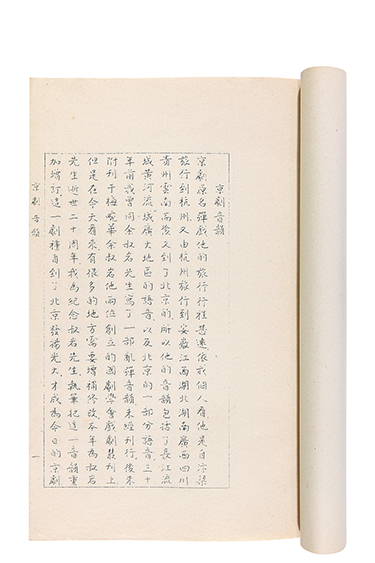 京劇音韻
京劇原名彈戲他的旅行行程甚遠依我個人看他是自汴梁
旅行到杭州又由杭州旅行到安徽江西湖北湖南廣西四川
貴州雲南而後又到了北京的所以他的音韻包括了長江流
域黃河流域廣大地區的語音以及北京的一部分語音三十
年前我曾同余叔岩先生寫了一部亂彈音韻未經刊行後來
附刊于梅畹華余叔岩他兩位創立的國劇學會戲劇叢刊上
但是在今天看來有很多的地方需要增補修改本年為叔岩
先生逝世二十周年我為紀念叔岩先生執筆把這一音韻重
加增訂這一劇種自到了北京發揚光大才成為今日的京劇
京劇音韻
一